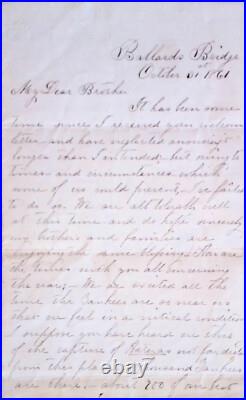 Ballards Bridge
October 31st 1861
My Dear Brother
It has been some
time since I received your welcome
letter and have neglected answering it
longer than I intended, but owing to
times and circumstances which
none of us could prevent, I've failed
to do so. We are all tolerably well
at this time and do hope sincerely
my brothers and families are
enjoying the same blessings. How are
the times with you all concerning
the war; — We are excited all the
time the Yankees are so near us
that we feel in a critical condition
I suppose you have heard ere this
of the capture of Hatteras not far distant
from this place thousand Yankees
are there, — about 700 of our best